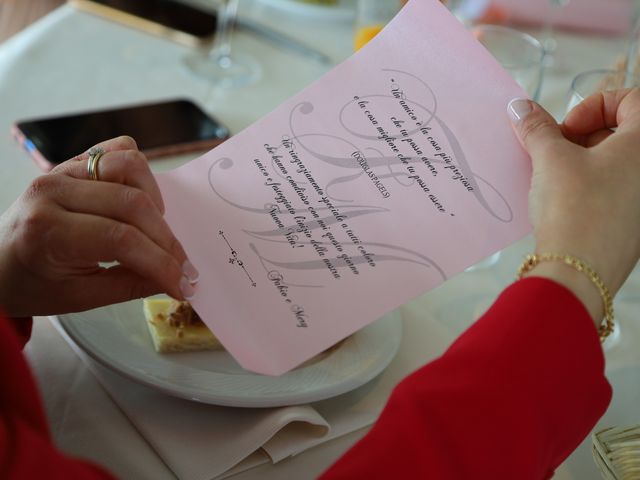 "Un amico è la cosa più preziosa
che tu possa avere,
e la cosa migliore che tu possa essere"
(DOUGLAS PAGELS)
Un ringraziamento speciale a tutti coloro
che hanno condiviso con noi questo giorno
unico e festeggiato l'inizio della nostra
Nuova Vita!
Fabio e Mery